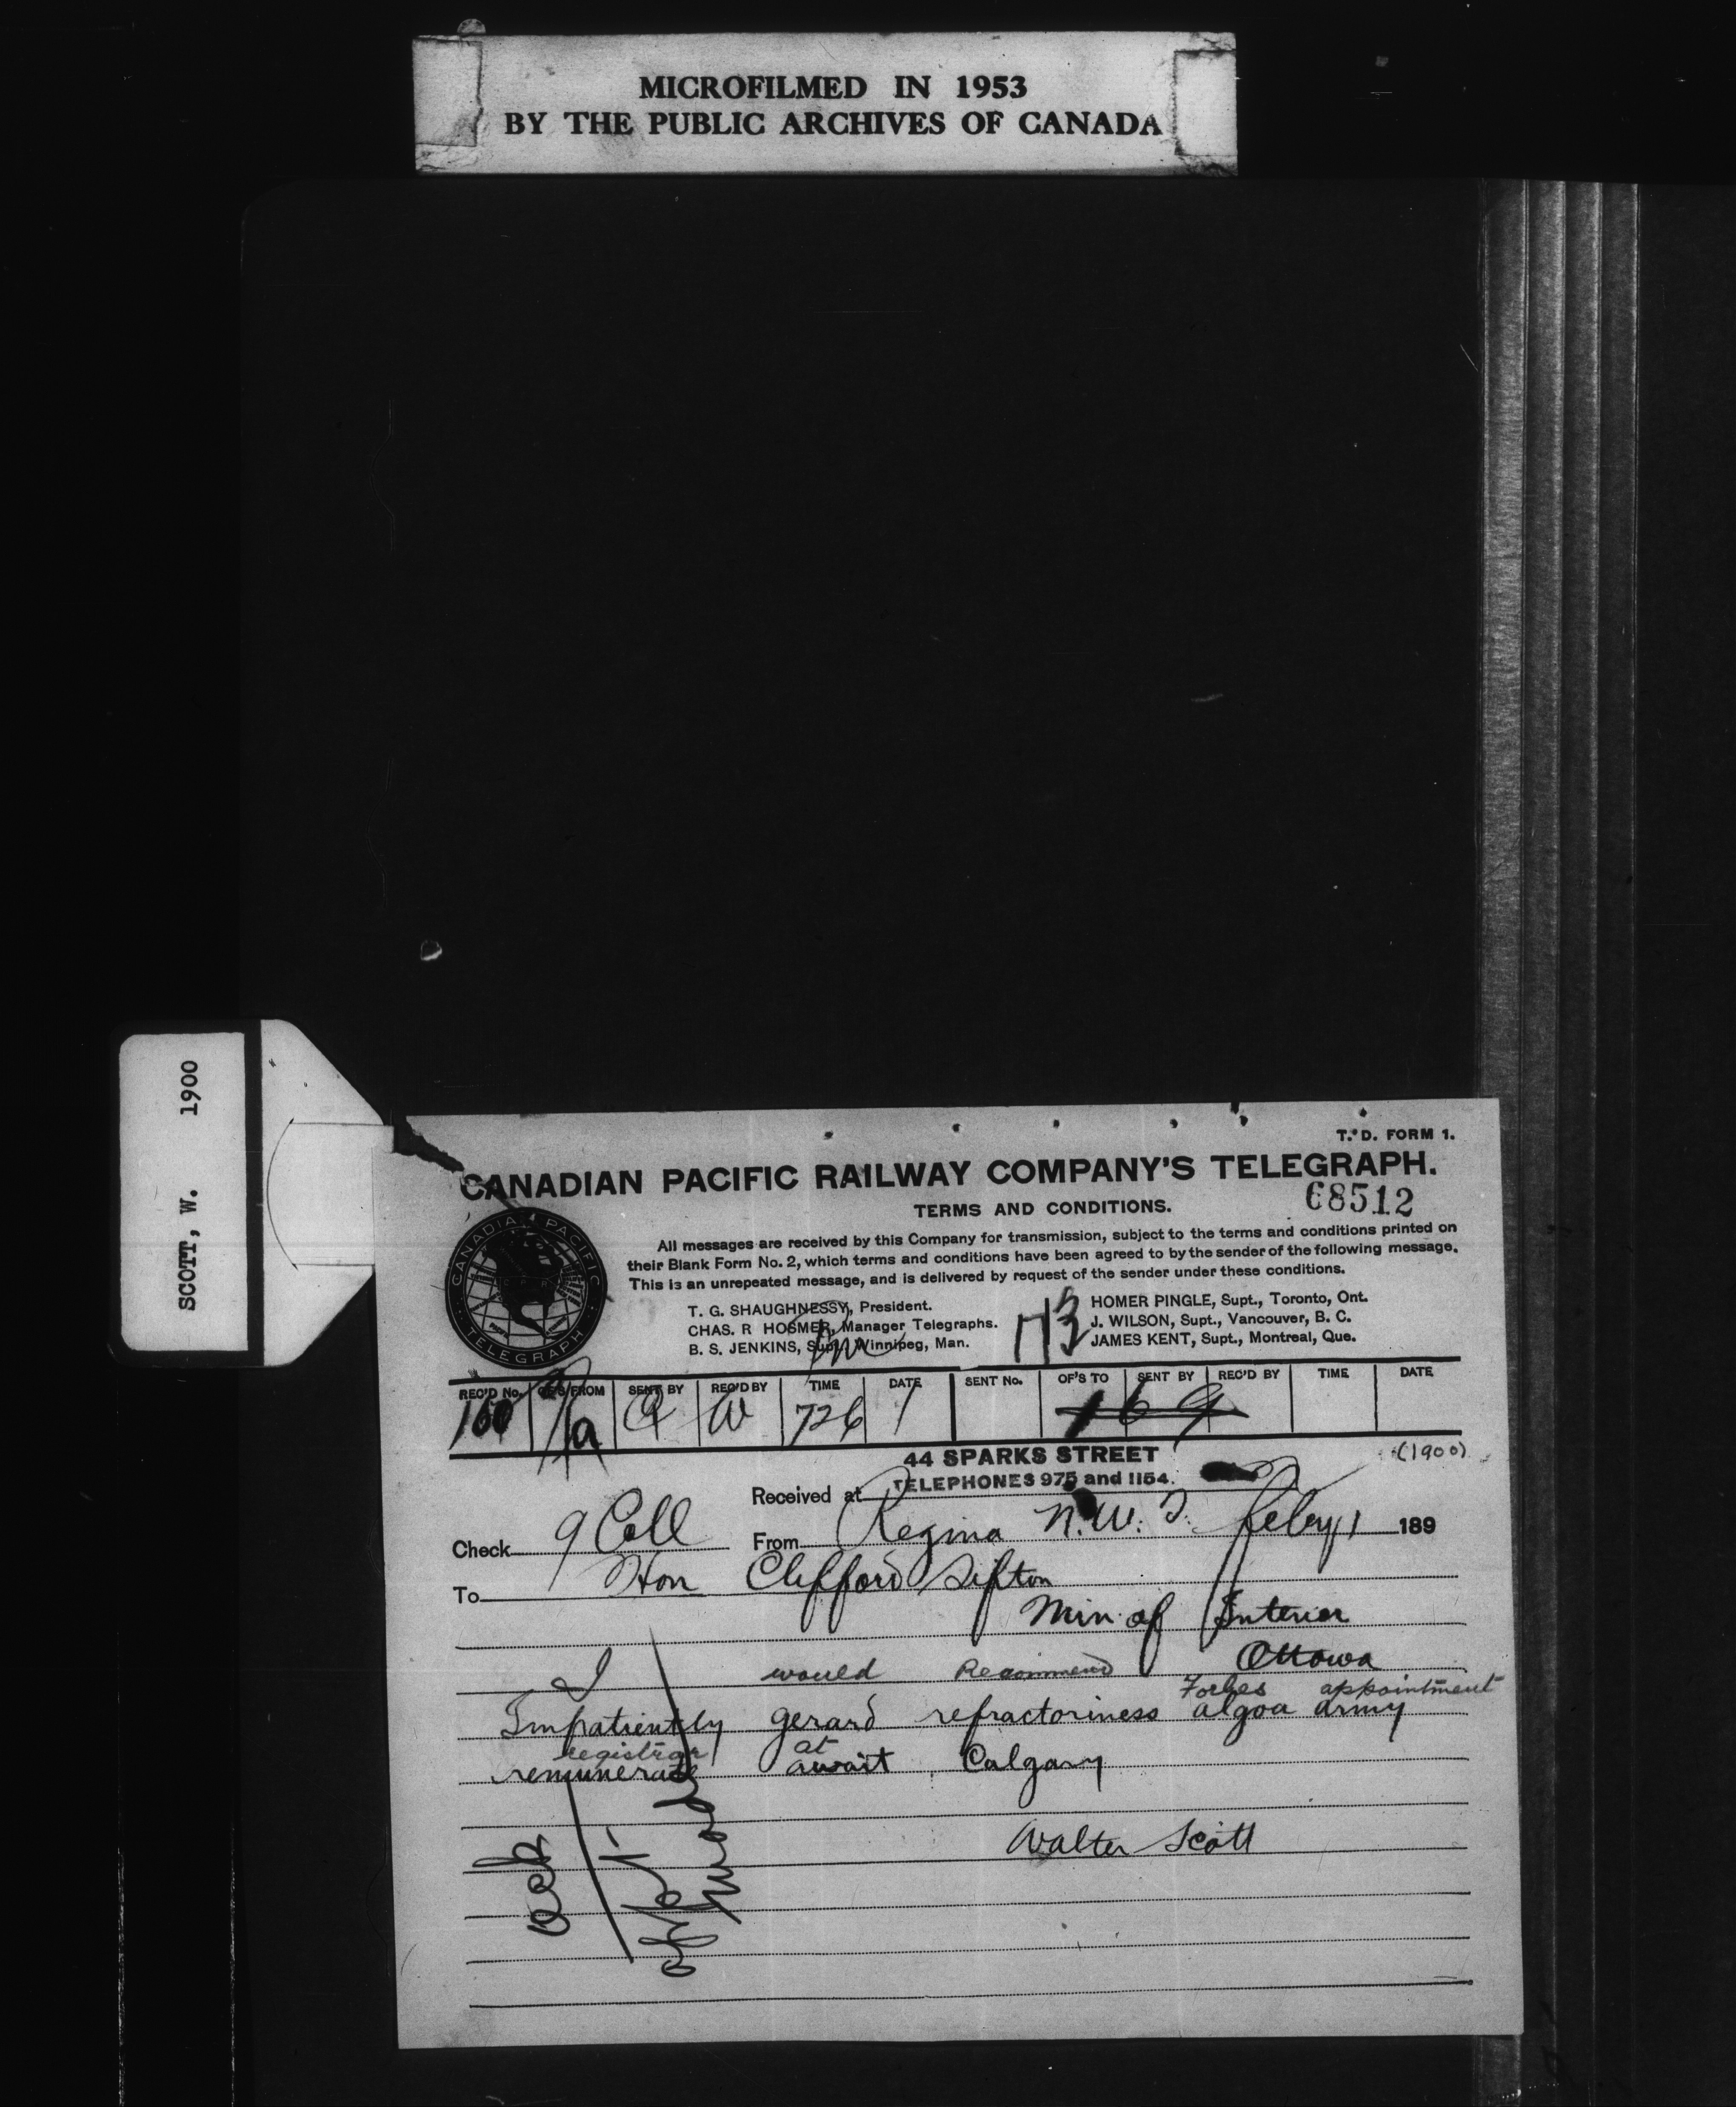 MICROFILMED IN 1953
BY THE PUBLIC ARCHIVES OF CANADA
SCOTT, W. 1900
T. D. FORM 1.
CANADIAN PACIFIC RAILWAY COMPANY'S TELEGRAPH.
TERMS AND CONDITIONS.
68512
CANADIAN PACIFIC
TELEGRAPH
All messages are received by this Company for transmission, subject to the terms and conditions printed on
their Blank Form No. 2, which terms and conditions have been agreed to by the sender of the following message.
This is an unrepeated message, and is delivered by request of the sender under these conditions.
T. G. SHAUGHNESSY, President.
CHAS. R HOSMER, Manager Telegraphs.
B. S. JENKINS, Supt., Winnipeg, Man.
HOMER PINGLE, Supt., Toronto, Ont.
J. WILSON, Supt., Vancouver, B. C.
JAMES KENT, Supt., Montreal, Que.
REC'D No. OF'S FROM SENT BY REC'D BY TIME DATE SENT No. OF'S TO SENT BY REC'D BY TIME DATE
160 a W 726 1 169
44 SPARKS STREET
TELEPHONES 975 and 1154.
(1900)
Received at
Check 9 Coll From Regina N.W.T. Feby 1 189
To Hon Clifford Sifton
Min of Interior
Ottawa
I would Recommend Forbes appointment
Impatiently gerard refractoriness algoa army
registrar at
remunerate await Calgary
Walter Scott
ack